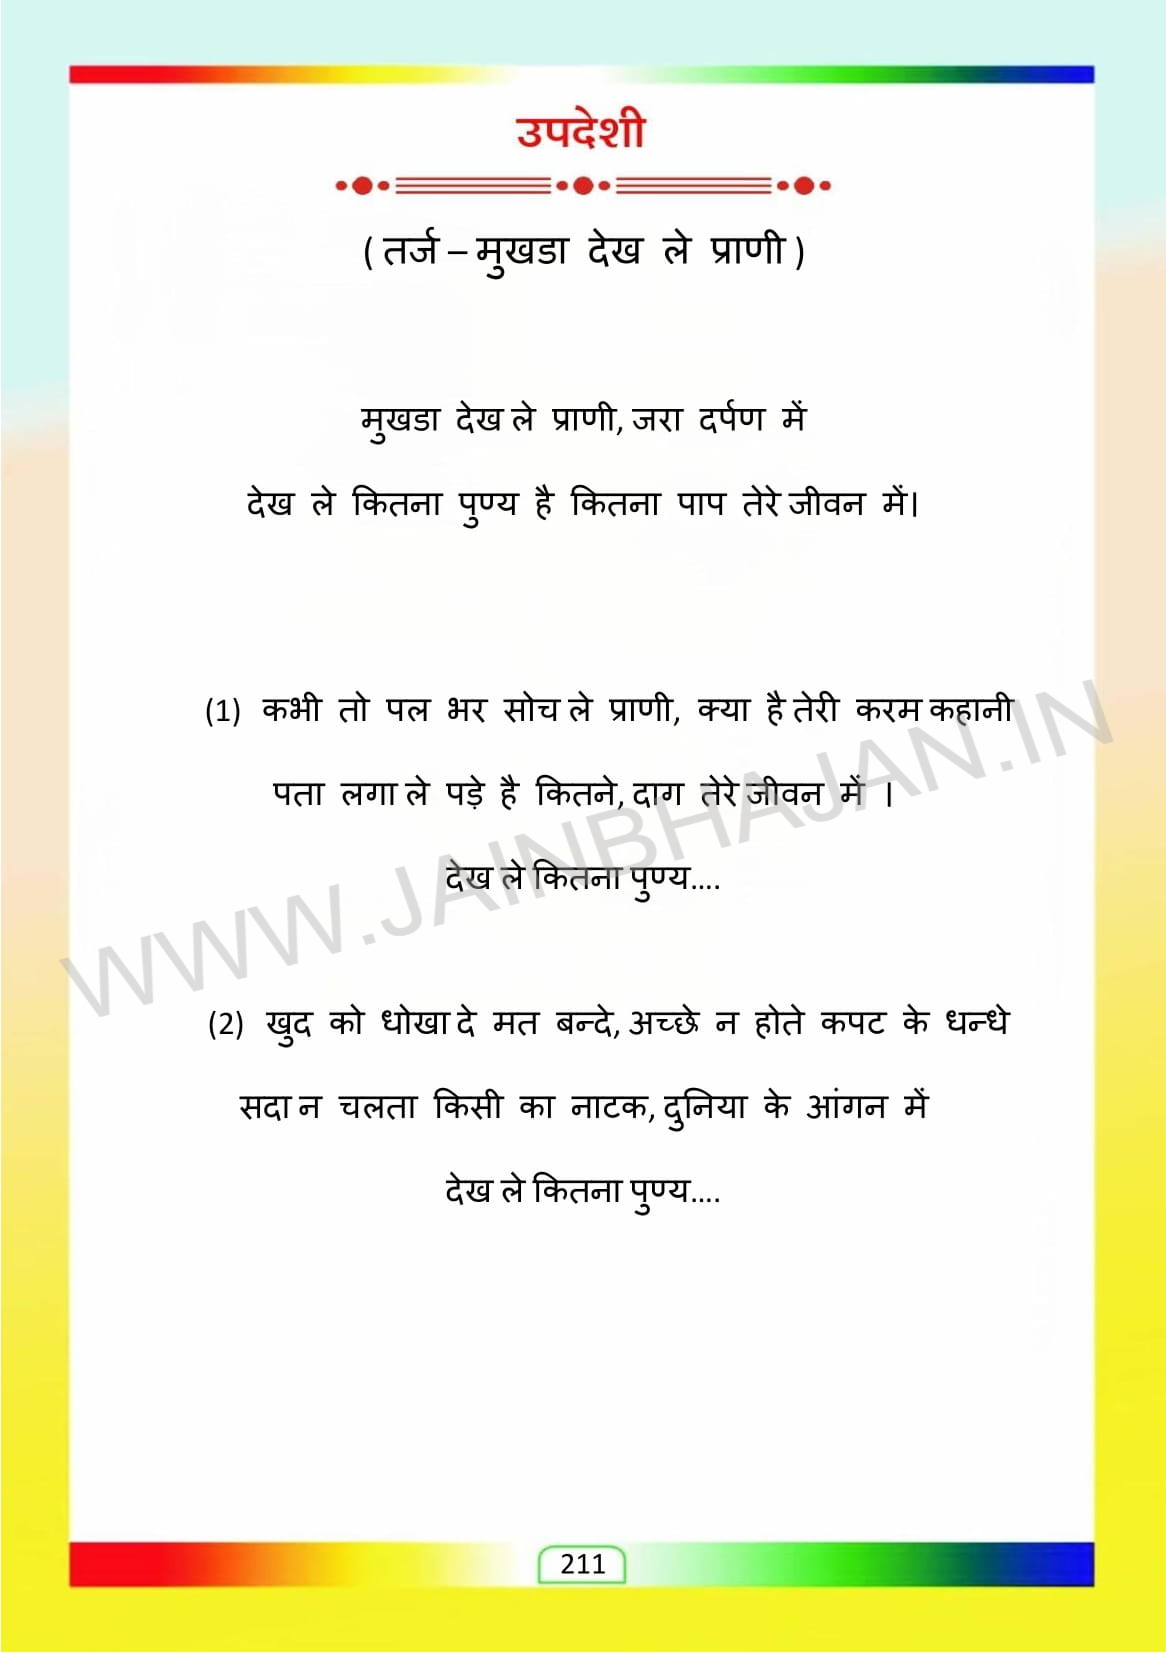 उपदेशी
( तर्ज – मुखडा देख ले प्राणी )
मुखडा देख ले प्राणी, जरा दर्पण में
देख ले कितना पुण्य है कितना पाप तेरे जीवन में।
(1) कभी तो पल भर सोच ले प्राणी, क्या है तेरी करम कहानी
पता लगा ले पड़े है कितने, दाग तेरे जीवन में ।
देख ले कितना पुण्य....
WWW.JAINBHAJAN.IN
(2) खुद को धोखा दे मत बन्दे, अच्छे न होते कपट के धन्धे
सदा न चलता किसी का नाटक, दुनिया के आंगन में
देख ले कितना पुण्य....
211